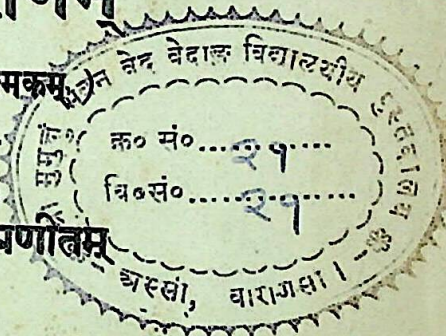 णम्
मकम्)
मुमुक्षु भवन वेद वेदाङ्ग विद्यालयीय पुस्तकालय
क्र० सं०..... २१ .....
वि०सं०..... २१ .....
णीतम्
अस्सी, वाराणसी।